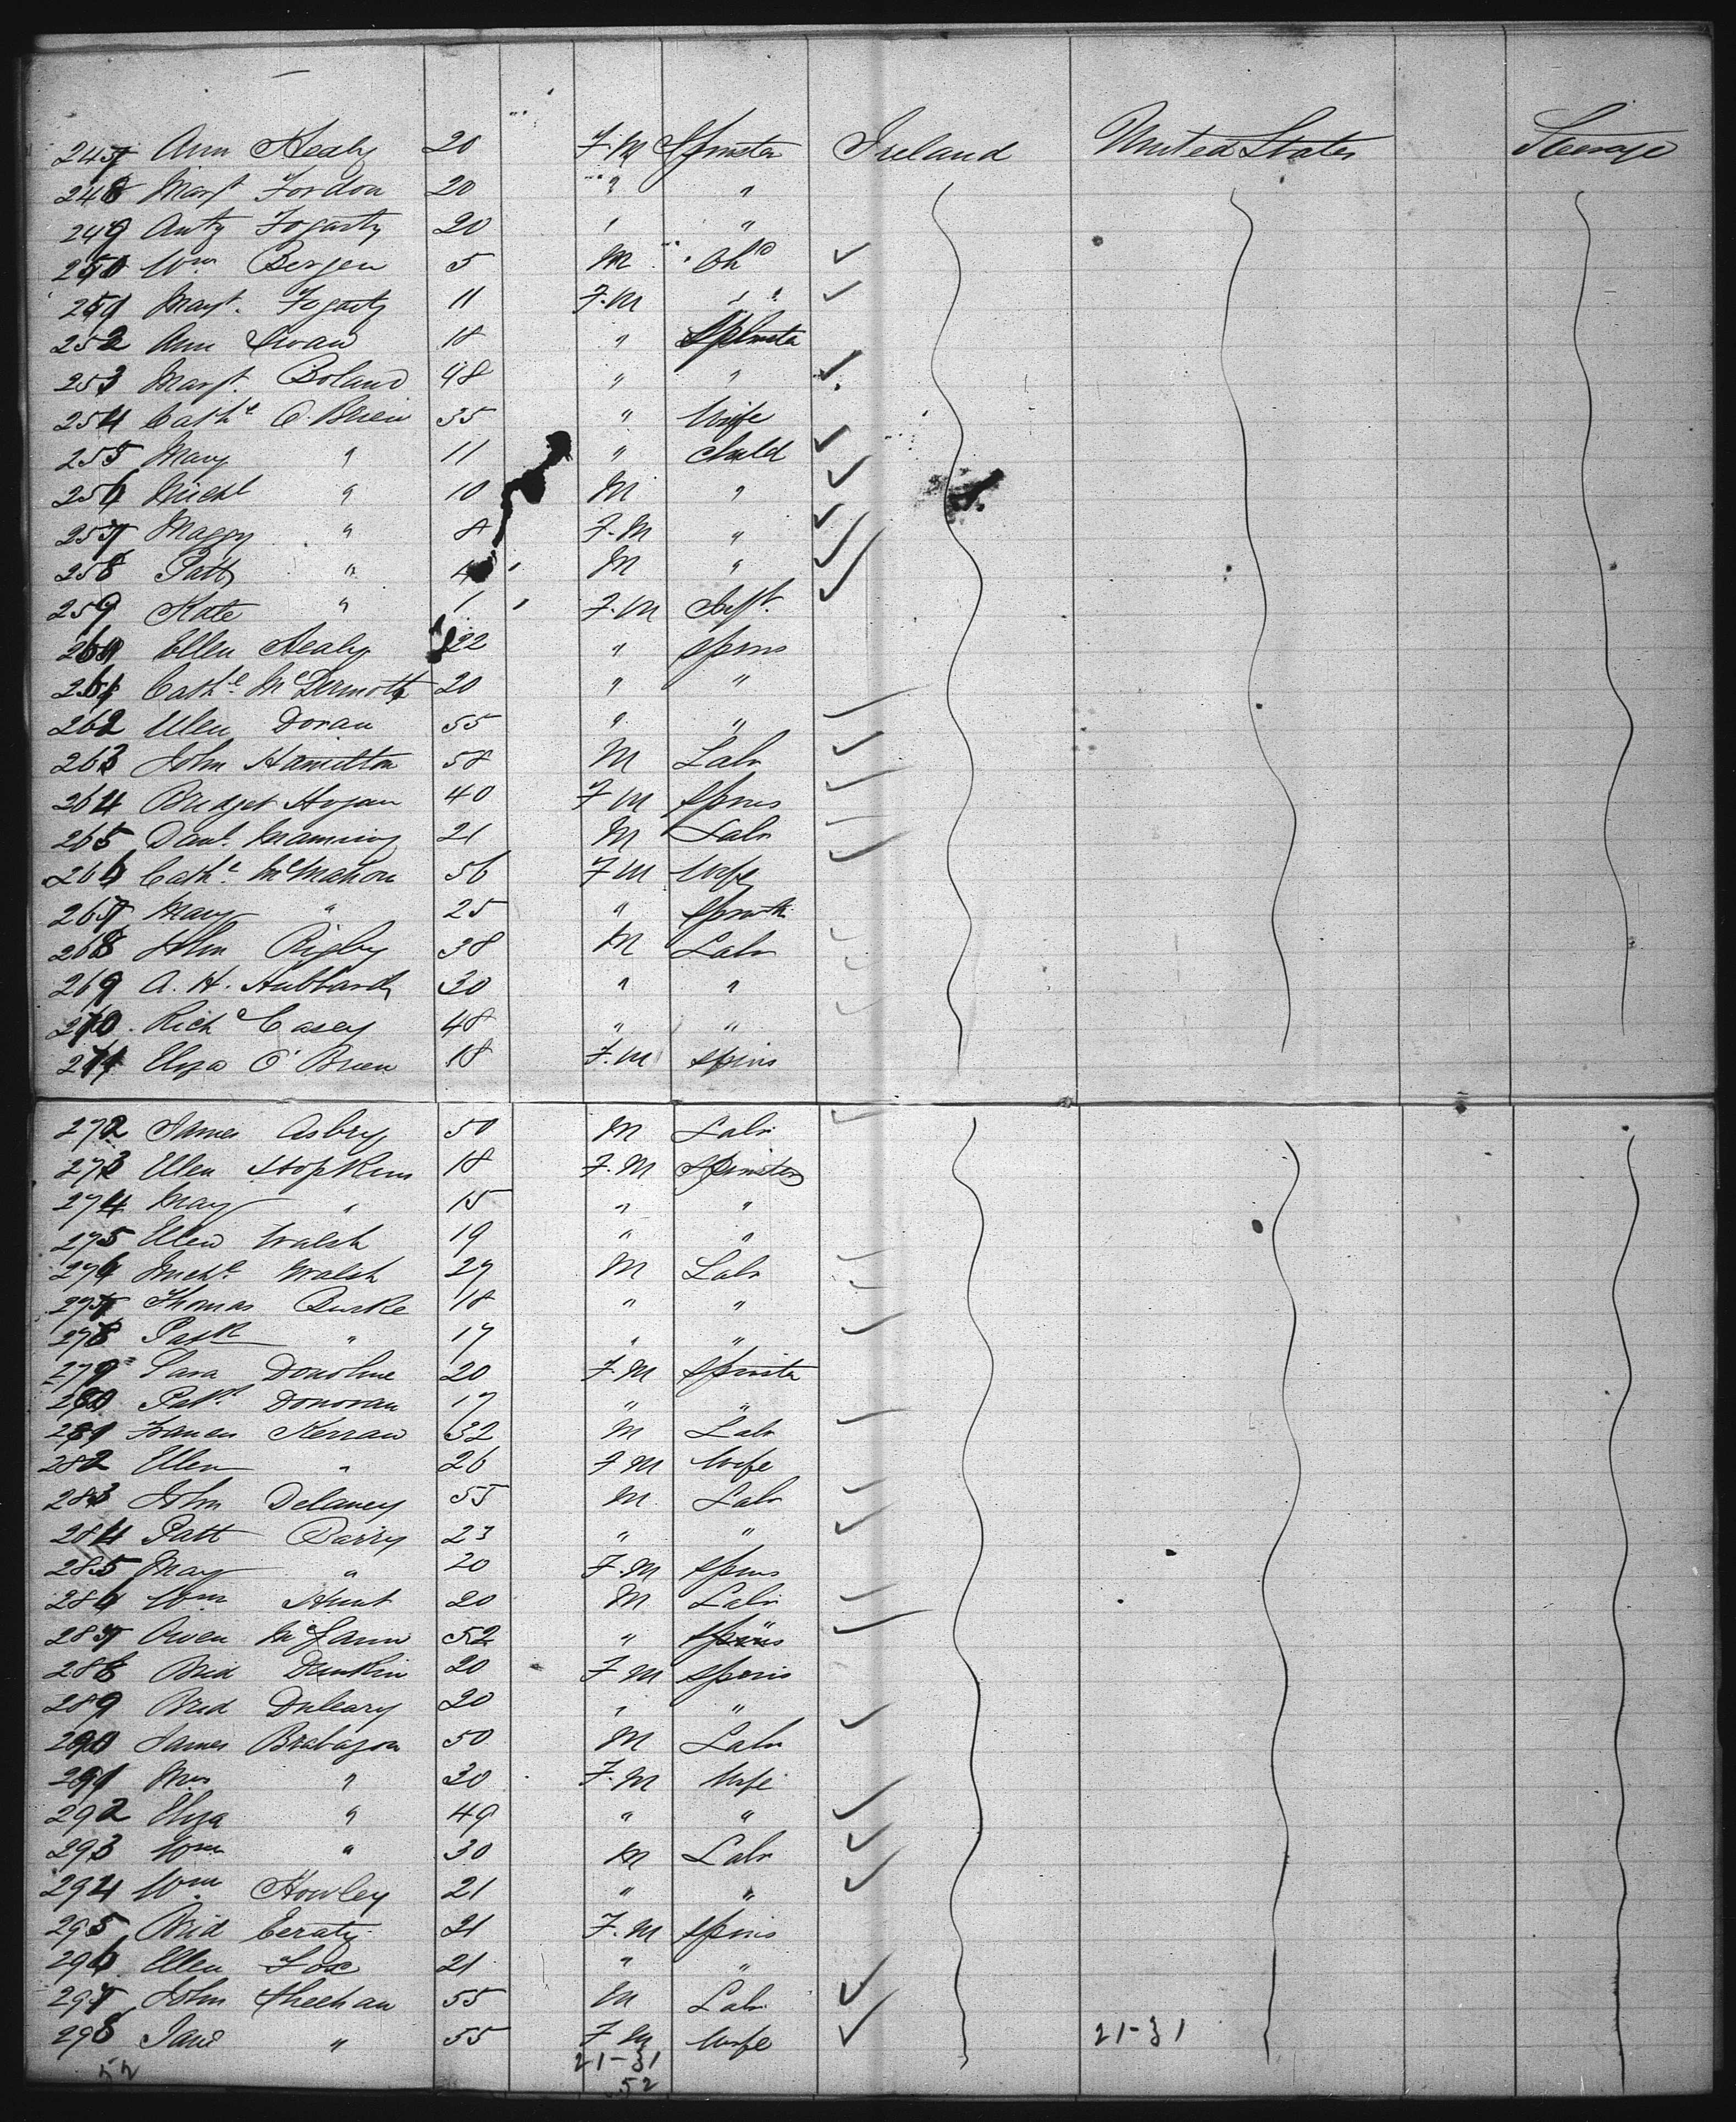 247 Ann Healy 20 F.M Spinster Ireland United States Steerage
248 Margt Fordon 20 " "
249 Anty Fogarty 20 " "
250 Wm Bergen 5 M Chd
251 Margt. Fogarty 11 F.M " "
252 Ann 18 " Spinster
253 Margt. Boland 48 " "
254 Cathe O'Brien 35 " Wife
255 Mary " 11 " child
256 Michl " 10 M "
257 Maggy " 8 F.M "
258 Patt " 4 M "
259 Kate " 1 F.M Inft.
260 Ellen Healy 22 " Spins
261 Cathe. McDermott 20 " "
262 Ellen Doran 55 " "
263 John Hamilton 58 M Labr
264 Bridget Hogan 40 F M Spins
265 Danl. Manning 21 M Labr
266 Cathe. McMahon 56 F M Wife
267 Mary " 25 " Spinstr
268 John Rigby 38 M Labr
269 A. H. Hubbard 30 " "
270 Rich Casey 48 " "
271 Eliza O'Brien 18 F.M Spins
272 James Asbry 50 M Labr
273 Ellen Hopkins 18 F.M Spinster
274 Mary " 15 " "
275 Ellen Walsh 19 " "
276 Michl. Walsh 27 M Labr
277 Thomas Burke 18 " "
278 Patk " 17 " "
279 Sara 20 F.M Spinster
280 Patk. Donovan 17 " "
281 Frances Kerran 32 M Labr
282 Ellen " 26 F M Wife
283 John Delaney 55 M Labr
284 Patt Barry 23 " "
285 Mary " 20 F.M Spins
286 Wm Hunt 20 M Labr
287 Owen McGann 52 " Spins
288 Brid Dunkin 20 F M Spins
289 Brid Duleary 20 " "
290 James Brabazon 50 M Labr
291 Mrs " 30 F.M Wife
292 Eliza " 49 " "
293 Wm " 30 M Labr
294 Wm Howley 21 " "
295 Brid Geraty 21 F.M Spins
296 Ellen Fox 21 " "
297 John Sheehan 55 M Labr
298 Jane " 55 F M Wife 21-31
52 21-31
52